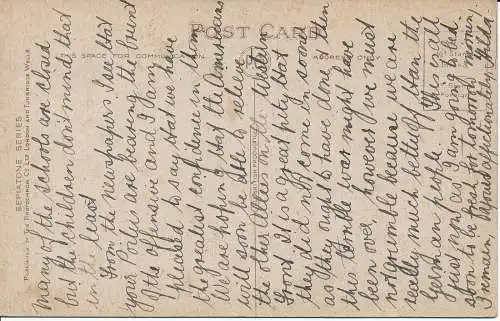 POST CARD
THIS SPACE FOR COMMUNICATION
ADDRESS ONLY
SEPIATONE SERIES
PUBLISHED BY THE PHOTOCHROM CO. LTD. LONDON AND TUNBRIDGE WELLS
many of the schools are closed
but the children don't mind that
in the least
From the newspapers I see that
your allies are bearing the brunt
of the offensive and I am
pleased to say that we have
the greatest confidence in them
We are hoping that the Americans
will soon be able to relieve
the other Allies on the Western
Front It is a great pity that
they did not come in sooner
as they ought to have done then
this terrible war might have
been over however we must
not grumble because we are
really much better off than the
German people. This is all
just now as I am going to bed
soon to be fresh for tomorrow morning
I remain Yours affectionately Hilda